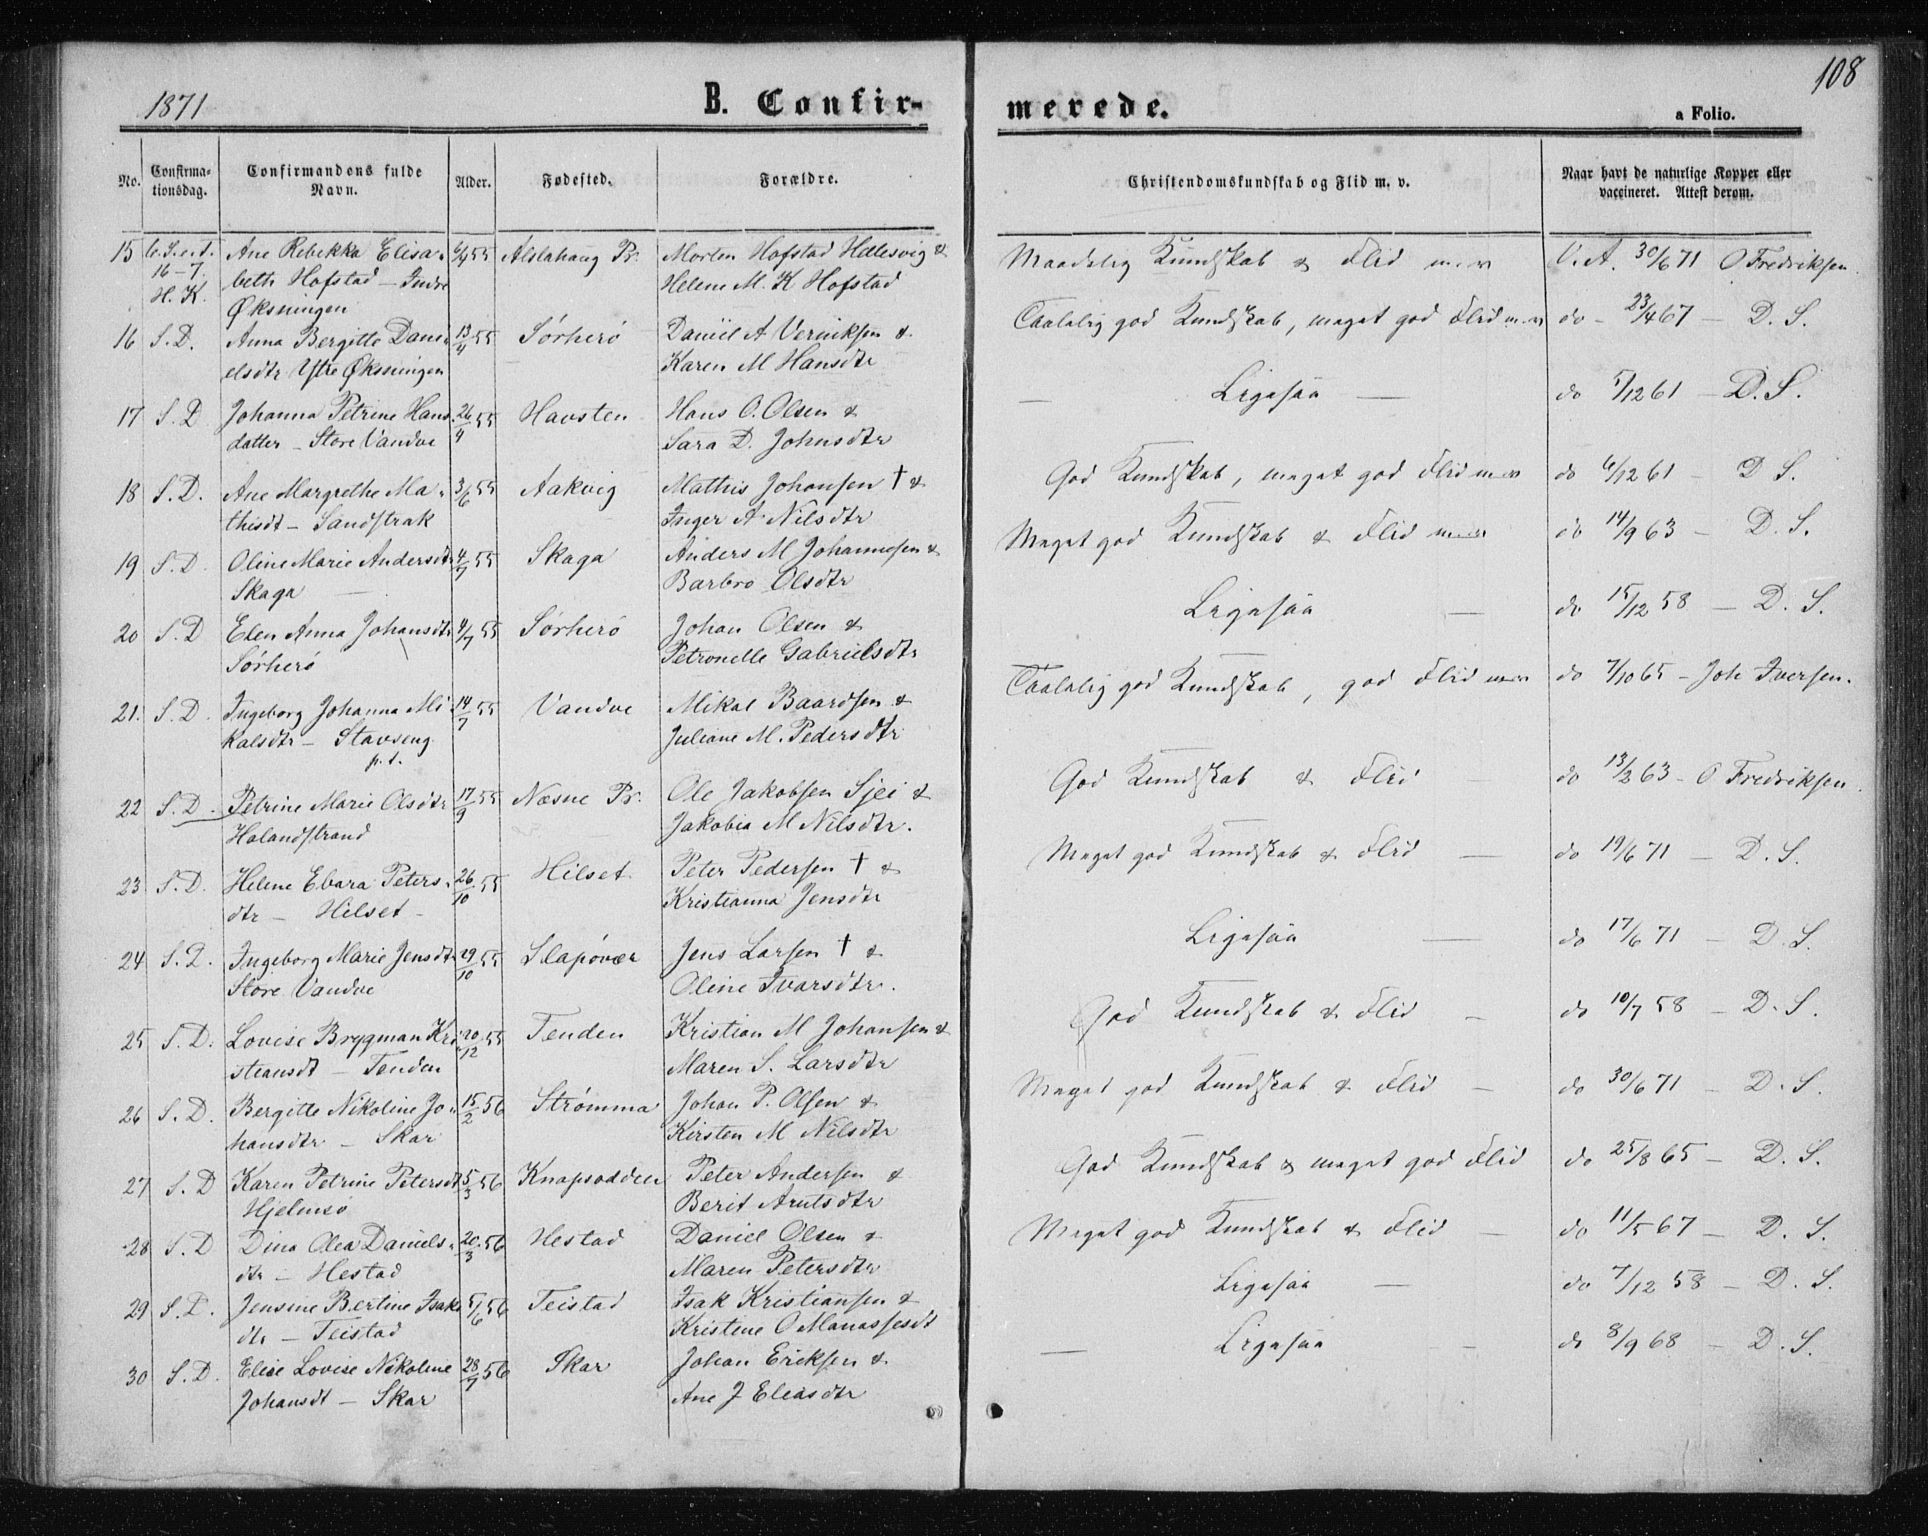 1871
B. Confir-
merede.
108
a Folio.
No.
Confirma-
tionsdag.
Confirmandens fulde
Navn.
Alder.
Fødested.
Forældre.
Christendomskundskab og Flid m. v.
Naar havt de naturlige Kopper eller
vaccineret. Attest derom.
15 6. S. e. t. Ane Rebekka Elisa- 6/4 55 Alslahaug Pr. Morten Hofstad Hellesvig &
16-7 beth Hofstad – Indre Helene M. K Hofstad
H. K. Øksningen
Maadelig Kundskab & Flid m.v V. A. 30/6 71 O Fredriksen.
16 S. D. Anna Bergitte Dani- 13/4 55 Sørherø Daniel A &
elsdtr Ytre Øksningen Karen M Hansdtr
Taalelig god Kundskab, meget god Flid m.v do – 23/4 67 – D. S.
17 S. D Johanna Petrine Hans- 26/4 55 Havsten Hans O. Olsen &
datter – Store Vandve Sara D. Johnsdtr
– Ligesaa – do 5/12 61 – D. S.
18 S. D. Ane Margrethe Ma- 3/6 55 Aakvig Mathis Johansen † &
thisdt – Sandstrak Inger A Nilsdtr
God Kundskab, meget god Flid m.v do 6/12 61 – D S.
19 S. D. Oline Marie Andersdtr 4/7 55 Skaga Anders M Johannesen &
Skaga – Barbro Olsdtr
Meget god Kundskab & Flid m.v do 14/9 63 – D. S.
20 S. D Elen Anna Johansdtr 4/7 55 Sørherø Johan Olsen &
Sørherø Petronelle Gabrielsdtr
Ligesaa – do 15/12 58 – D. S.
21. S. D. Ingeborg Johanna Mi- 14/7 55 Vandve Mikal Baardsen &
kalsdtr – Stavseng Juliane M. Pedersdtr
p. t.
Taalelig god Kundskab, god Flid m.v do 7/10 65 – Joh Iversen.
22 S. D. Petrine Marie Olsdtr 17/9 55 Næsne Pr. Ole Jakobsen Sjei &
Halandstrand Jakobia M Nilsdtr.
God Kundskab & Flid – do 13/2 63 – O Fredriksen.
23 S. D. Helene Ebara Peters- 26/10 55 Hilset Peter Pedersen † &
dtr – Hilset – Kristianna Jensdtr
Meget god Kundskab & Flid – do 19/6 71 – D. S.
24 S. D. Ingeborg Marie Jensdtr 29/10 55 Slapøvær Jens Larsen † &
Store Vandve Oline Ivarsdtr.
Ligesaa – do 17/6 71 – D. S.
25 S. D. Lovise Brygman Kri- 20/12 55 Tenden Kristian M Johansen &
stiansdt – Tenden Maren S. Larsdtr
God Kundskab & Flid – do 10/7 58 – D. S.
26 S. D. Bergitte Nikoline Jo- 15/2 56 Strømma Johan P. Olsen &
hansdtr – Skar Kirsten M Nilsdtr
Meget god Kundskab & Flid – do 30/6 71 – D. S.
27 S. D Karen Petrine Petersdt 5/3 56 Knapsodden Peter Andersen &
Hjelmsø Berit Arntsdtr
God Kundskab & meget god Flid do 25/8 65 – D. S.
28 S. D Dina Olea Daniels- 20/3 56 Hestad Daniel Olsen &
dtr – Hestad Maren Petersdtr
Meget god Kundskab & Flid – do 11/5 67 – D. S.
29 S. D. Jensine Bertine Isaks 5/6 56 Teistad Isak Kristiansen &
dtr – Teistad Kristene O Manassesdt
Ligesaa – do 7/12 58 – D. S.
30 S. D. Elise Lovise Nikoline 28/7 56 Skar Johan Eriksen &
Johansdt – Skar Ane J Eliasdtr
– Ligesaa – do 8/9 68 – D. S.